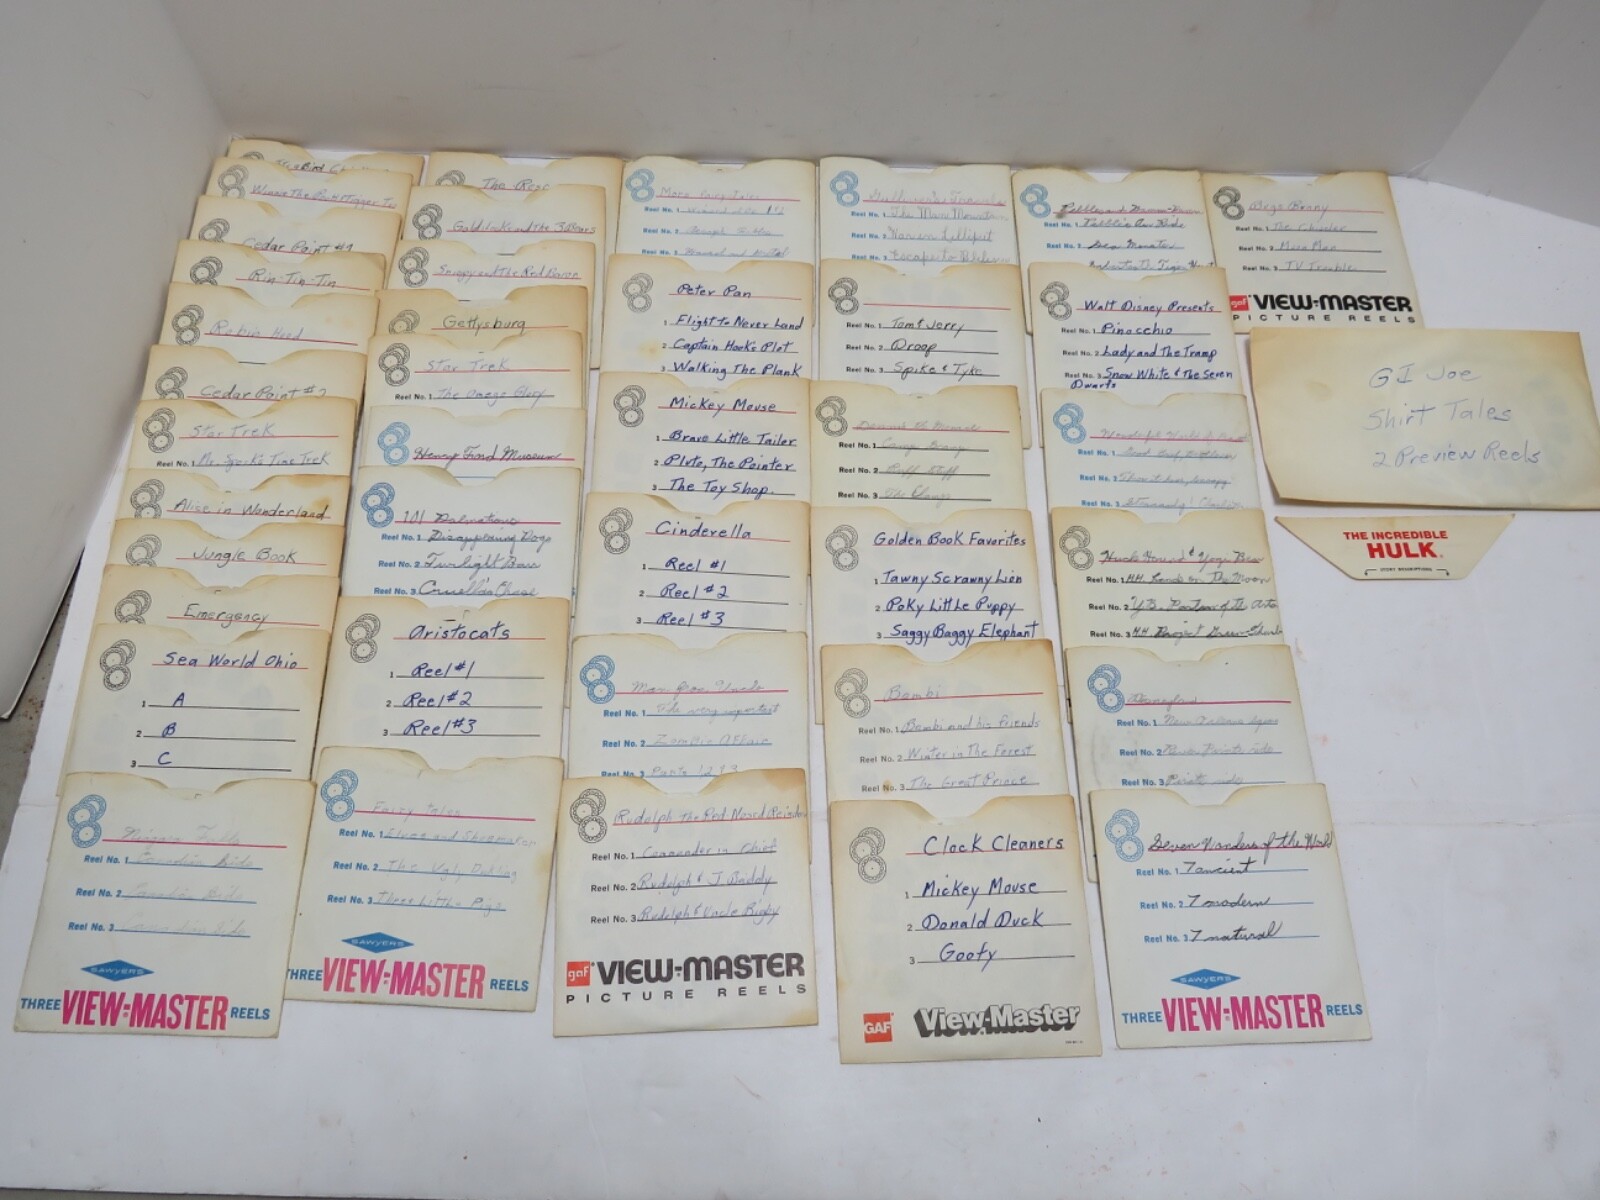 Winnie The Pooh & Tigger Too
Cedar Point #1
Rin-Tin-Tin
Robin Hood
Cedar Point #2
Star Trek
Reel No. 1 Mr. Spock's Time Trek
Alice in Wonderland
Jungle Book
Emergency
Sea World Ohio
1 A
2 B
3 C
Niagara Falls
Reel No. 1 Canadian Side
Reel No. 2 Canadian Side
Reel No. 3 Canadian Side
SAWYERS
THREE VIEW-MASTER REELS
The
Goldilocks and the 3 Bears
Snoopy and The Red Baron
Gettysburg
Star Trek
Reel No. 1 The Omega Glory
Henry Ford Museum
101 Dalmations
Reel No. 1 Disappearing Dogs
Reel No. 2 Twilight Bark
Reel No. 3 Cruella's Chase
Aristocats
1 Reel #1
2 Reel #2
3 Reel #3
Fairy tales
Reel No. 1 Elves and Shoemaker
Reel No. 2 The Ugly Duckling
Reel No. 3 Three Little Pigs
SAWYERS
THREE VIEW-MASTER REELS
More Fairy Tales
Reel No. 1
Reel No. 2
Reel No. 3 Hansel and Gretel
Peter Pan
1 Flight to Never Land
2 Captain Hook's Plot
3 Walking The Plank
Mickey Mouse
1 Brave Little Tailer
2 Pluto, The Pointer
3 The Toy Shop.
Cinderella
1 Reel #1
2 Reel #2
3 Reel #3
Man from Uncle
Reel No. 1 The very important
Reel No. 2 Zombie Affair
Reel No. 3 Parts 1 2 & 3
Rudolph The Red Nosed Reindeer
Reel No. 1 Commander in Chief
Reel No. 2 Rudolph & J. Baddy
Reel No. 3 Rudolph & Uncle Bigby
gaf VIEW-MASTER
PICTURE REELS
Gulliver's Travels
Reel No. 1 The Man Mountain
Reel No. 2 War in Lilliput
Reel No. 3 Escape to Blefuscu
Reel No. 1 Tom & Jerry
Reel No. 2 Droop
Reel No. 3 Spike & Tyke
Dennis the Menace
Reel No. 1
Reel No. 2 Ruff Stuff
Reel No. 3 The
Golden Book Favorites
1 Tawny Scrawny Lion
2 Poky Little Puppy
3 Saggy Baggy Elephant
Bambi
Reel No. 1 Bambi and his Friends
Reel No. 2 Winter in The Forest
Reel No. 3 The Great Prince
Clock Cleaners
1 Mickey Mouse
2 Donald Duck
3 Goofy
GAF View-Master
Pebbles and Bamm-Bamm
Reel No. 1 Pebble's Ride
Reel No. 2 Sea Monster
Walt Disney Presents
Reel No. 1 Pinocchio
Reel No. 2 Lady and The Tramp
Reel No. 3 Snow White & The Seven
Dwarfs
Reel No. 1
Reel No. 2
Reel No. 3
Huck Hound & Yogi Bear
Reel No. 1 H.H. Lands on The Moon
Reel No. 2 Y.B.
Reel No. 3 H.H. Project
Disneyland
Reel No. 1 New Orleans Square
Reel No. 2 Pirate ride
Reel No. 3 Pirate ride
Seven Wonders of the World
Reel No. 1 7 ancient
Reel No. 2 7 modern
Reel No. 3 7 natural
SAWYERS
THREE VIEW-MASTER REELS
Bugs Bunny
Reel No. 1 The
Reel No. 2
Reel No. 3 TV Trouble
gaf VIEW-MASTER
PICTURE REELS
GI Joe
Shirt Tales
2 Preview Reels
THE INCREDIBLE
HULK